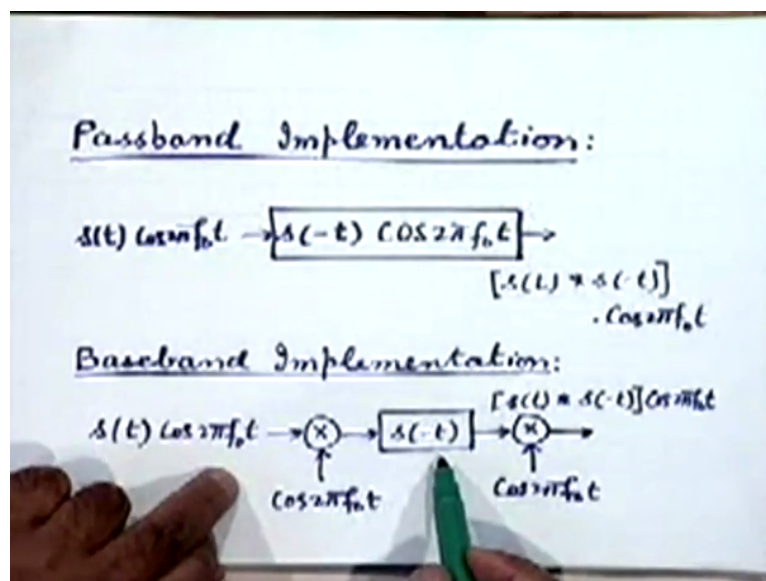 Passband Implementation:
s(t) Cos2πf₀t → s(-t) COS2πf₀t →
[s(t) * s(-t)]
. Cos2πf₀t
Baseband Implementation:
[s(t) * s(-t)] Cos2πf₀t
s(t) Cos2πf₀t → × → s(-t) → × →
Cos2πf₀t Cos2πf₀t